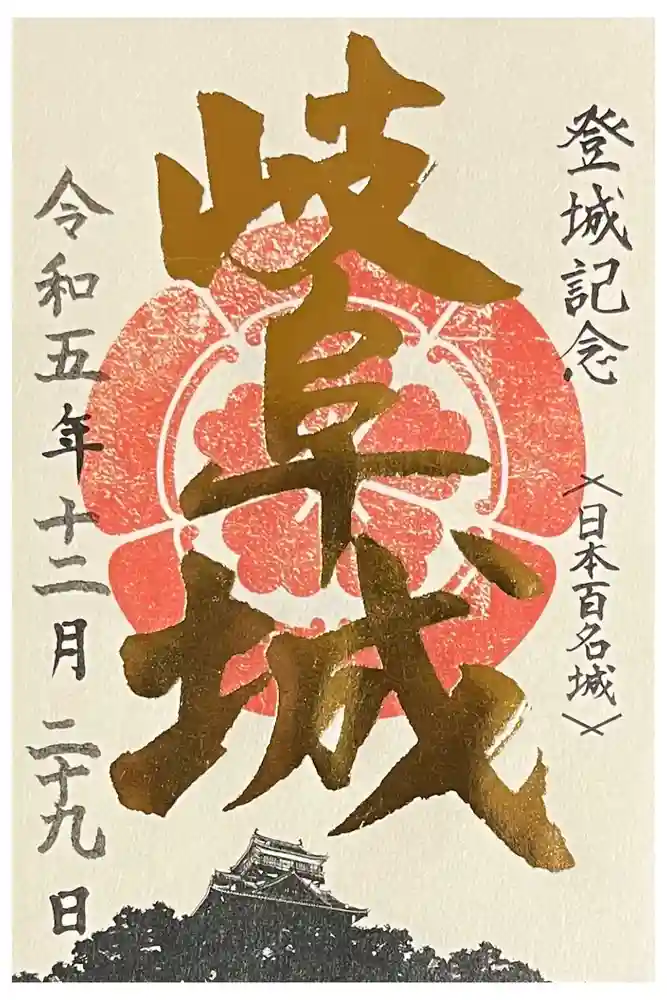 登城記念
〈日本百名城〉
岐阜城
令和五年十二月二十九日